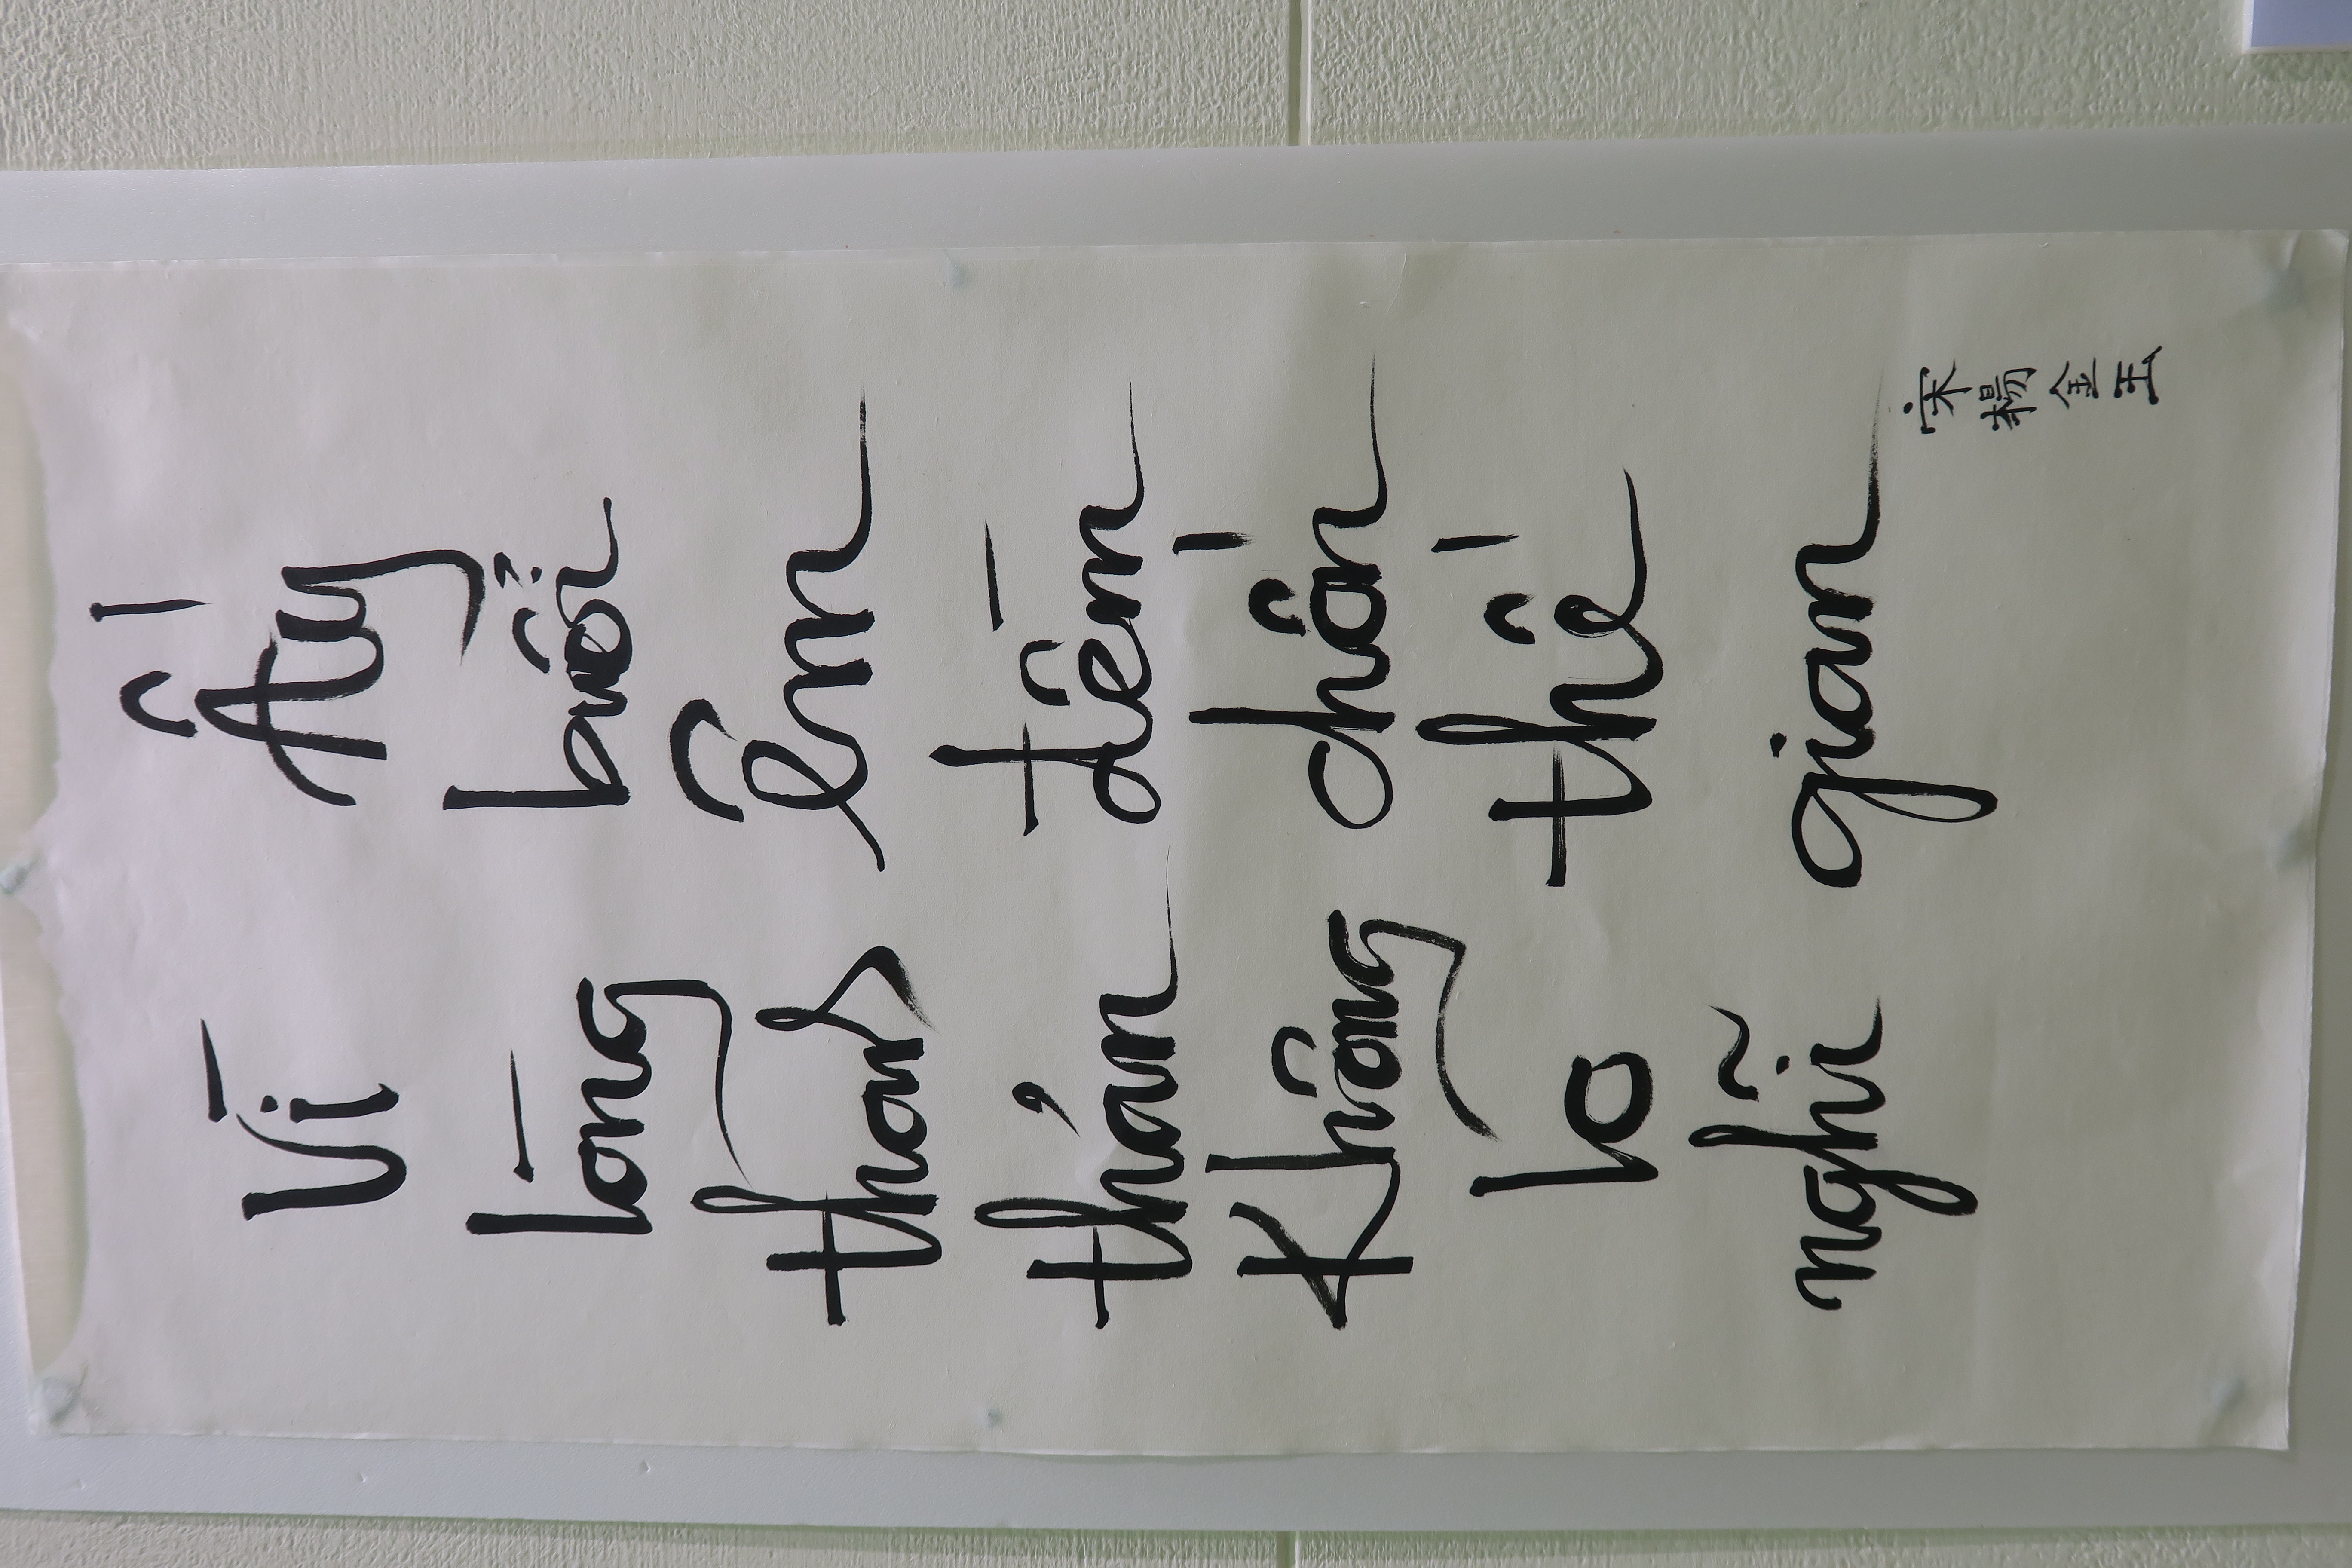 Vì lòng thanh thản Không lo nghĩ
Ấy buổi êm đềm chốn thế gian
宋楊金玉